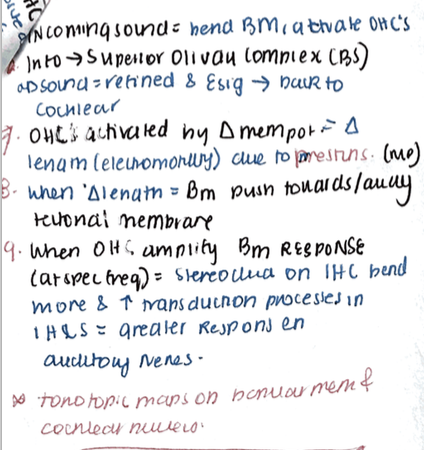 INcoming sound = bend BM, activate OHC's
Into → Superior Olivary Complex (BS)
sound = refined & Esig → back to
cochlear
7. OHC's activated by Δ mem pot = Δ
length (electromotility) due to prestins. (MP)
8. when Δ length = Bm push towards/away
tectorial membrane
9. When OHC amplify Bm RESPONSE
(at spec freq) = stereocilia on IHC bend
more & ↑ transduction processes in
IHCS = greater Respons en
auditory nerves.
tonotopic maps on basilar mem &
cochlear nucleus.